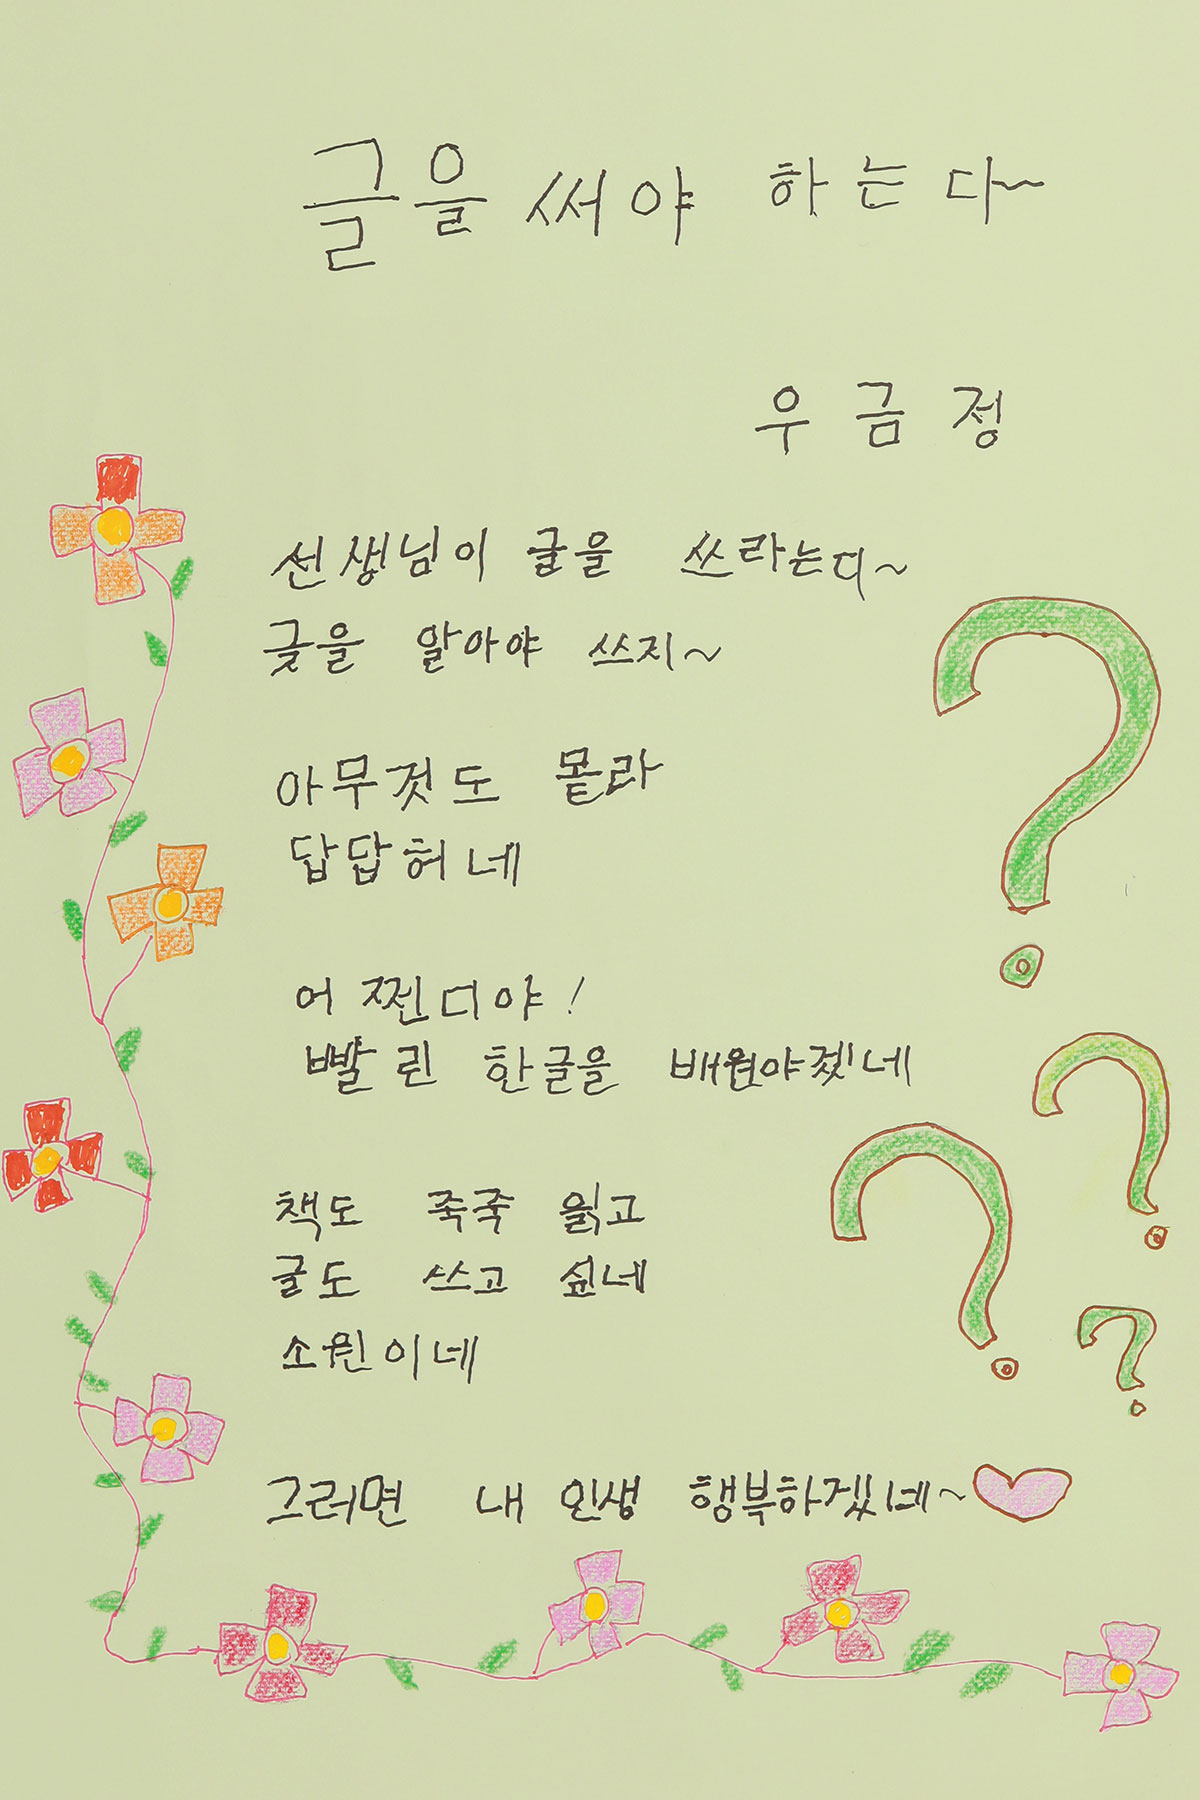 글을 써야 하는다~
우금정
선생님이 글을 쓰라는디~
긋을 알아야 쓰지~
아무것도 몰라
답답허네
어쩐디야!
빨린 한글을 배워야겠네
책도 죽죽 읽고
글도 쓰고 싶네
소원이네
그러면 내 인생 행복하겠네~